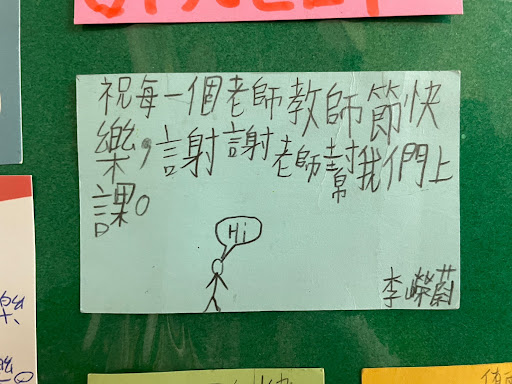 祝每一個老師教師節快
樂，謝謝老師幫我們上
課。
Hi
李嶸蔚